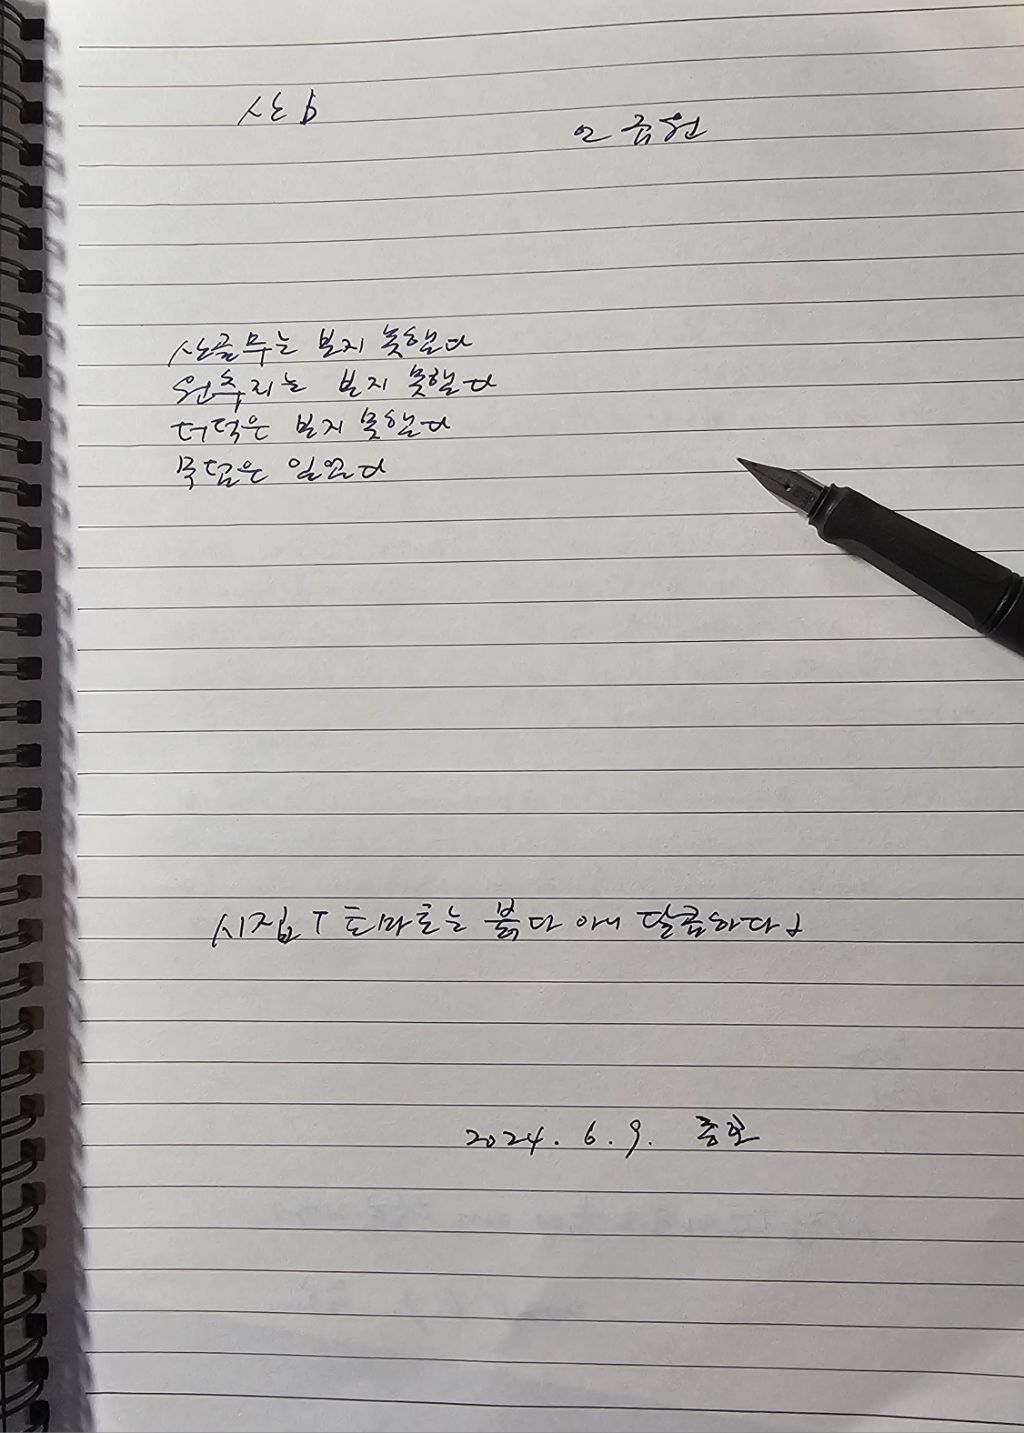 산 b
오 규원
산골무는 보지 못했다
원추리는 보지 못했다
더덕은 보지 못했다
무덤은 있었다
시집 「토마토는 붉다 아니 달콤하다」
2024. 6. 9.